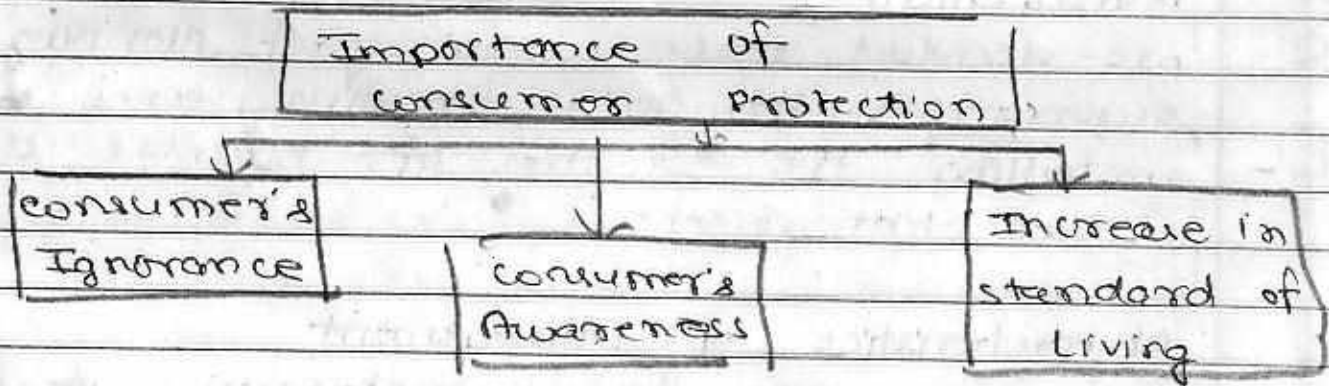 Importance of
consumer protection
consumer's
Ignorance
consumer's
Awareness
Increase in
standard of
Living